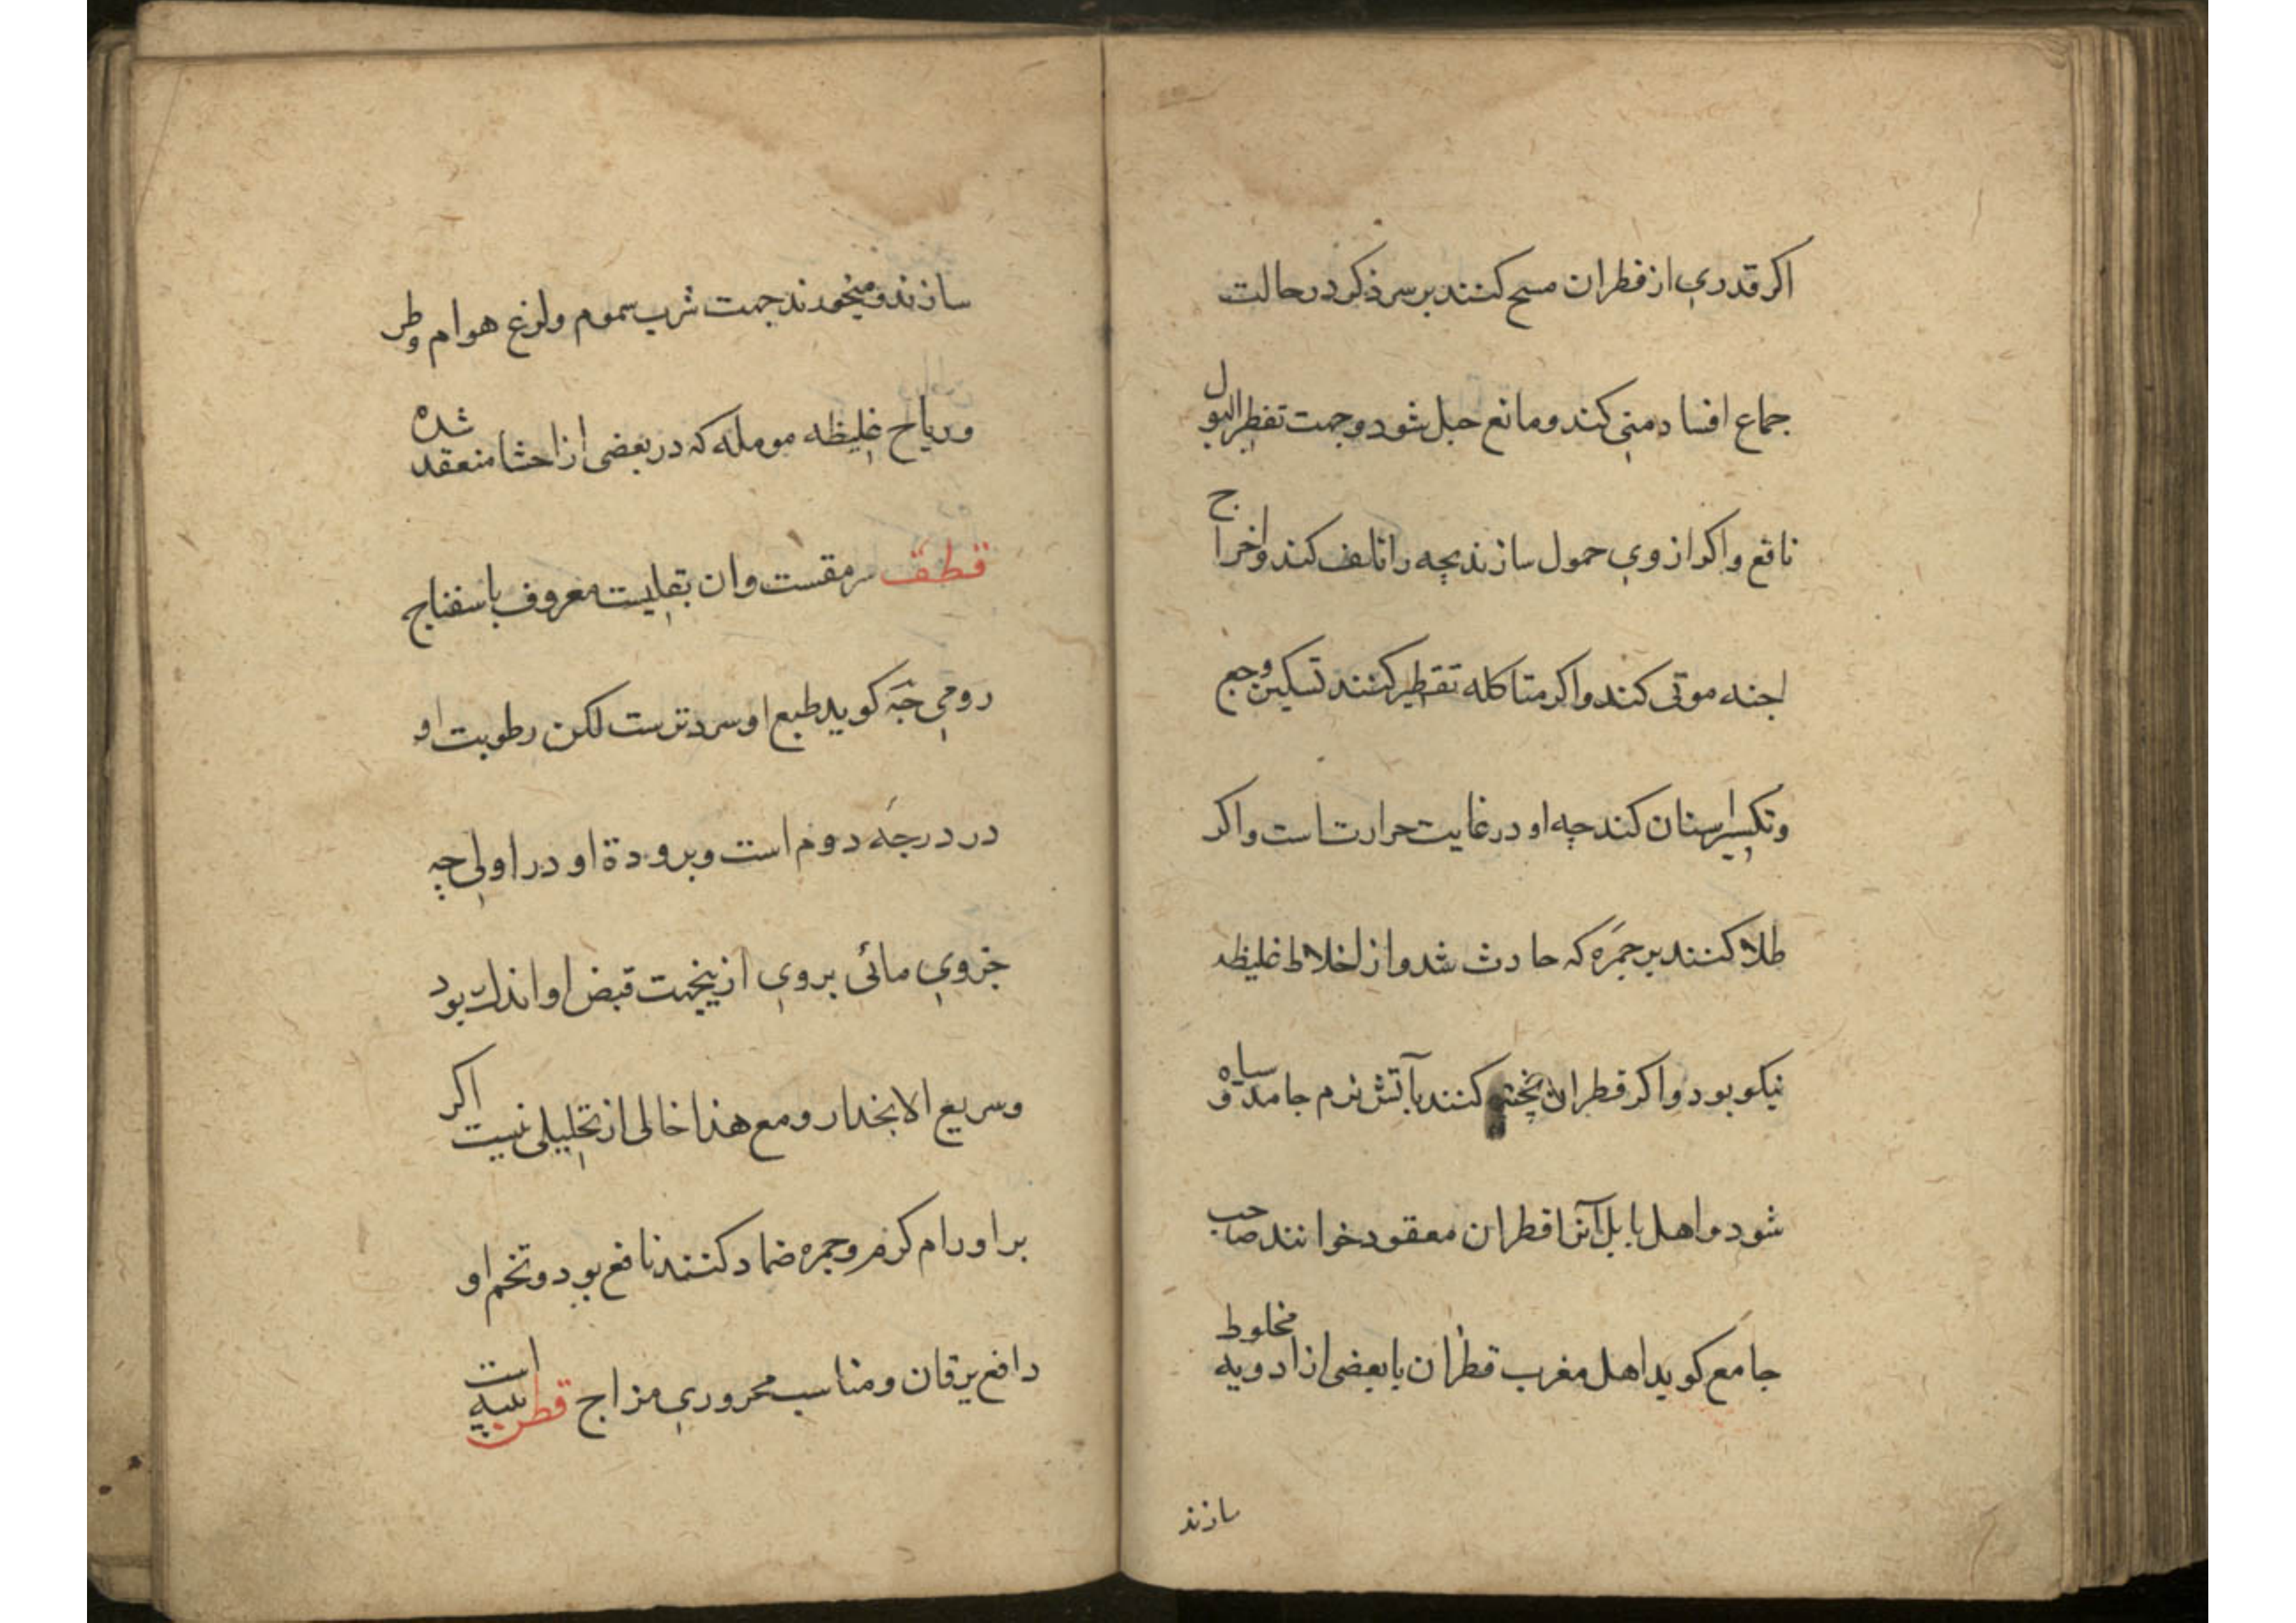 اکر قدری از قطران مسح کنند بر سر ذکر در حالت
جماع افساد منی کند و مانع حبل شود و جهت تقطر البول
نافع و اکر از وی حمول سازند بچه را تلف کند و اخراج
اجنه موتی کند و اکر متاکله تقطیر کنند تسکین وجع
و تکسیر اسنان کند چه او در غایت حرارت است و اکر
طلا کنند بر جمره که حادث شد و از اخلاط غلیظه
نیکو بود و اکر قطران پخته کنند بآتش نرم جامد و سیاه
شود و اهل بابل آنرا قطران معقود خوانند صاحب
جامع کوید اهل مغرب قطران با بعضی از ادویه مخلوط
سازند
سازند و میخورند جهت شرب سموم و لدغ هوام
و ریاح غلیظه مومله که در بعضی از احشا منعقد شده
قطف سرمقست و ان بقلیست معروف باسفناج
رومی کوید طبع او سرد ترست لکن رطوبت او
در درجه دوم است و برودة او در اولی چه
جزوی مائی بروی ازینجهت قبض او اندک بود
و سریع الانحدار و مع هذا خالی از تحلیلی نیست اکر
بر اورام کرم و جمره ضماد کنند نافع بود و تخم او
دافع یرقان و مناسب محروری مزاج قطن پنبه است